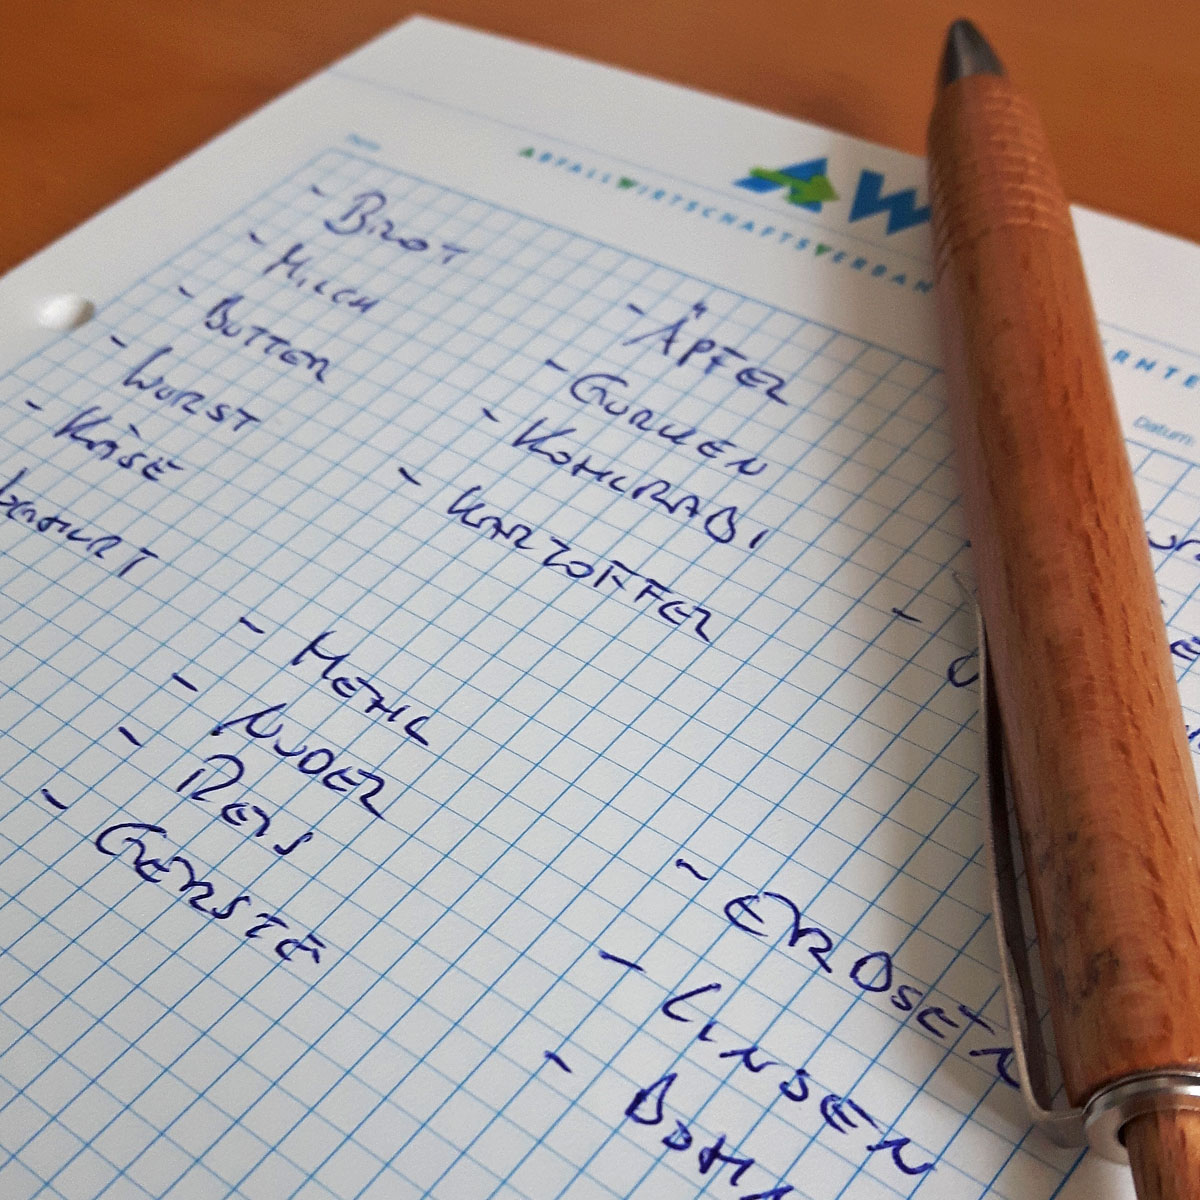 ABFALLWIRTSCHAFTSVERBAN
AW
RNTE
Datum:
- BROT
- MILCH
- BUTTER
- WURST
- KÄSE
- ÄPFEL
- GURKEN
- KOHLRABI
- KARTOFFEL
- MEHL
- NUDEL
- REIS
- GERSTE
- ERBSEN
- LINSEN
- BOHN